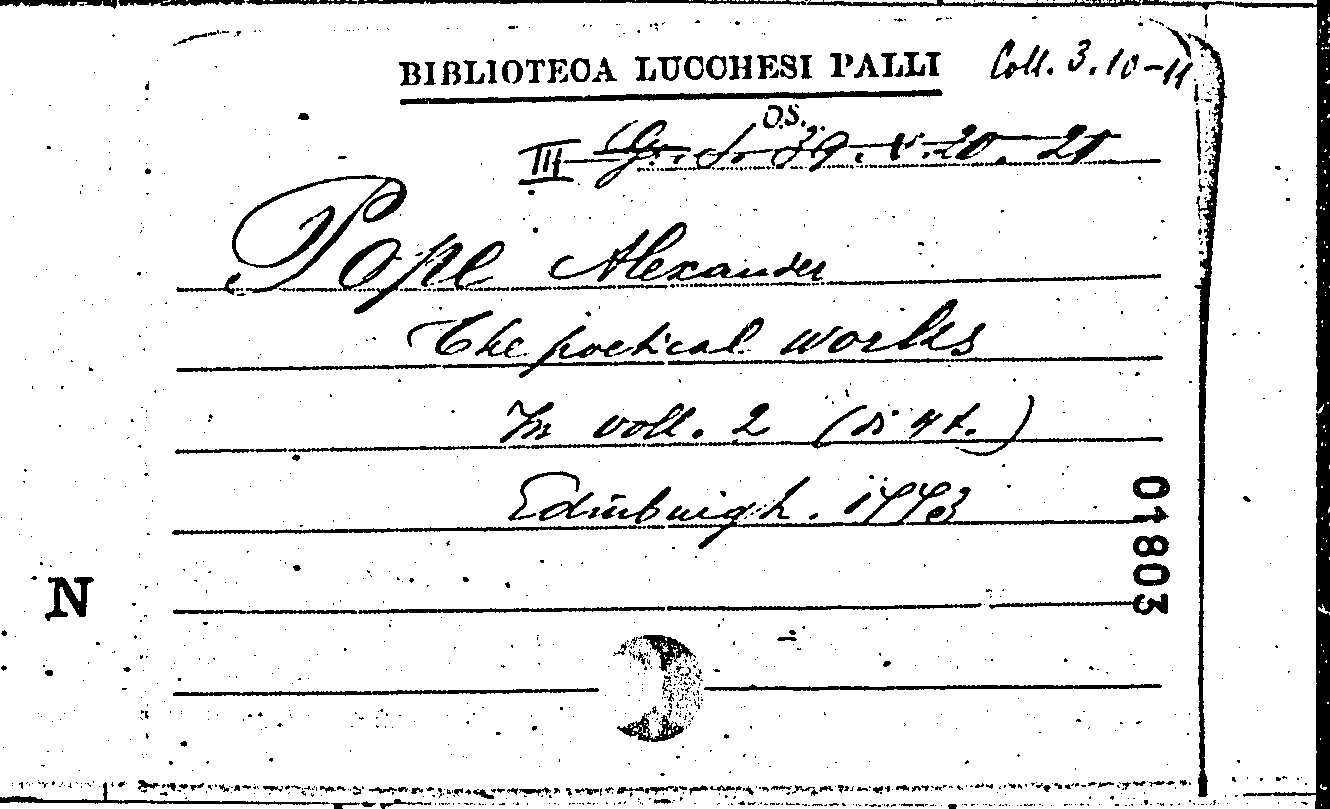 BIBLIOTECA LUCCHESI PALLI Coll. 3.10-11
D.S.
III
Pope Alexander
The poetical works
In voll. 2 (di 4 t.)
Edinburigh. 1773
01803
N